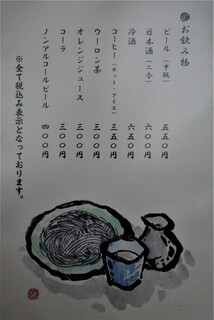 お飲み物
ビール（中瓶） 六五〇円
日本酒（二合） 六〇〇円
冷酒 六五〇円
コーヒー（ホット・アイス） 三五〇円
ウーロン茶 三〇〇円
オレンジジュース 三〇〇円
コーラ 三〇〇円
ノンアルコールビール 四〇〇円
※全て税込み表示となっております。